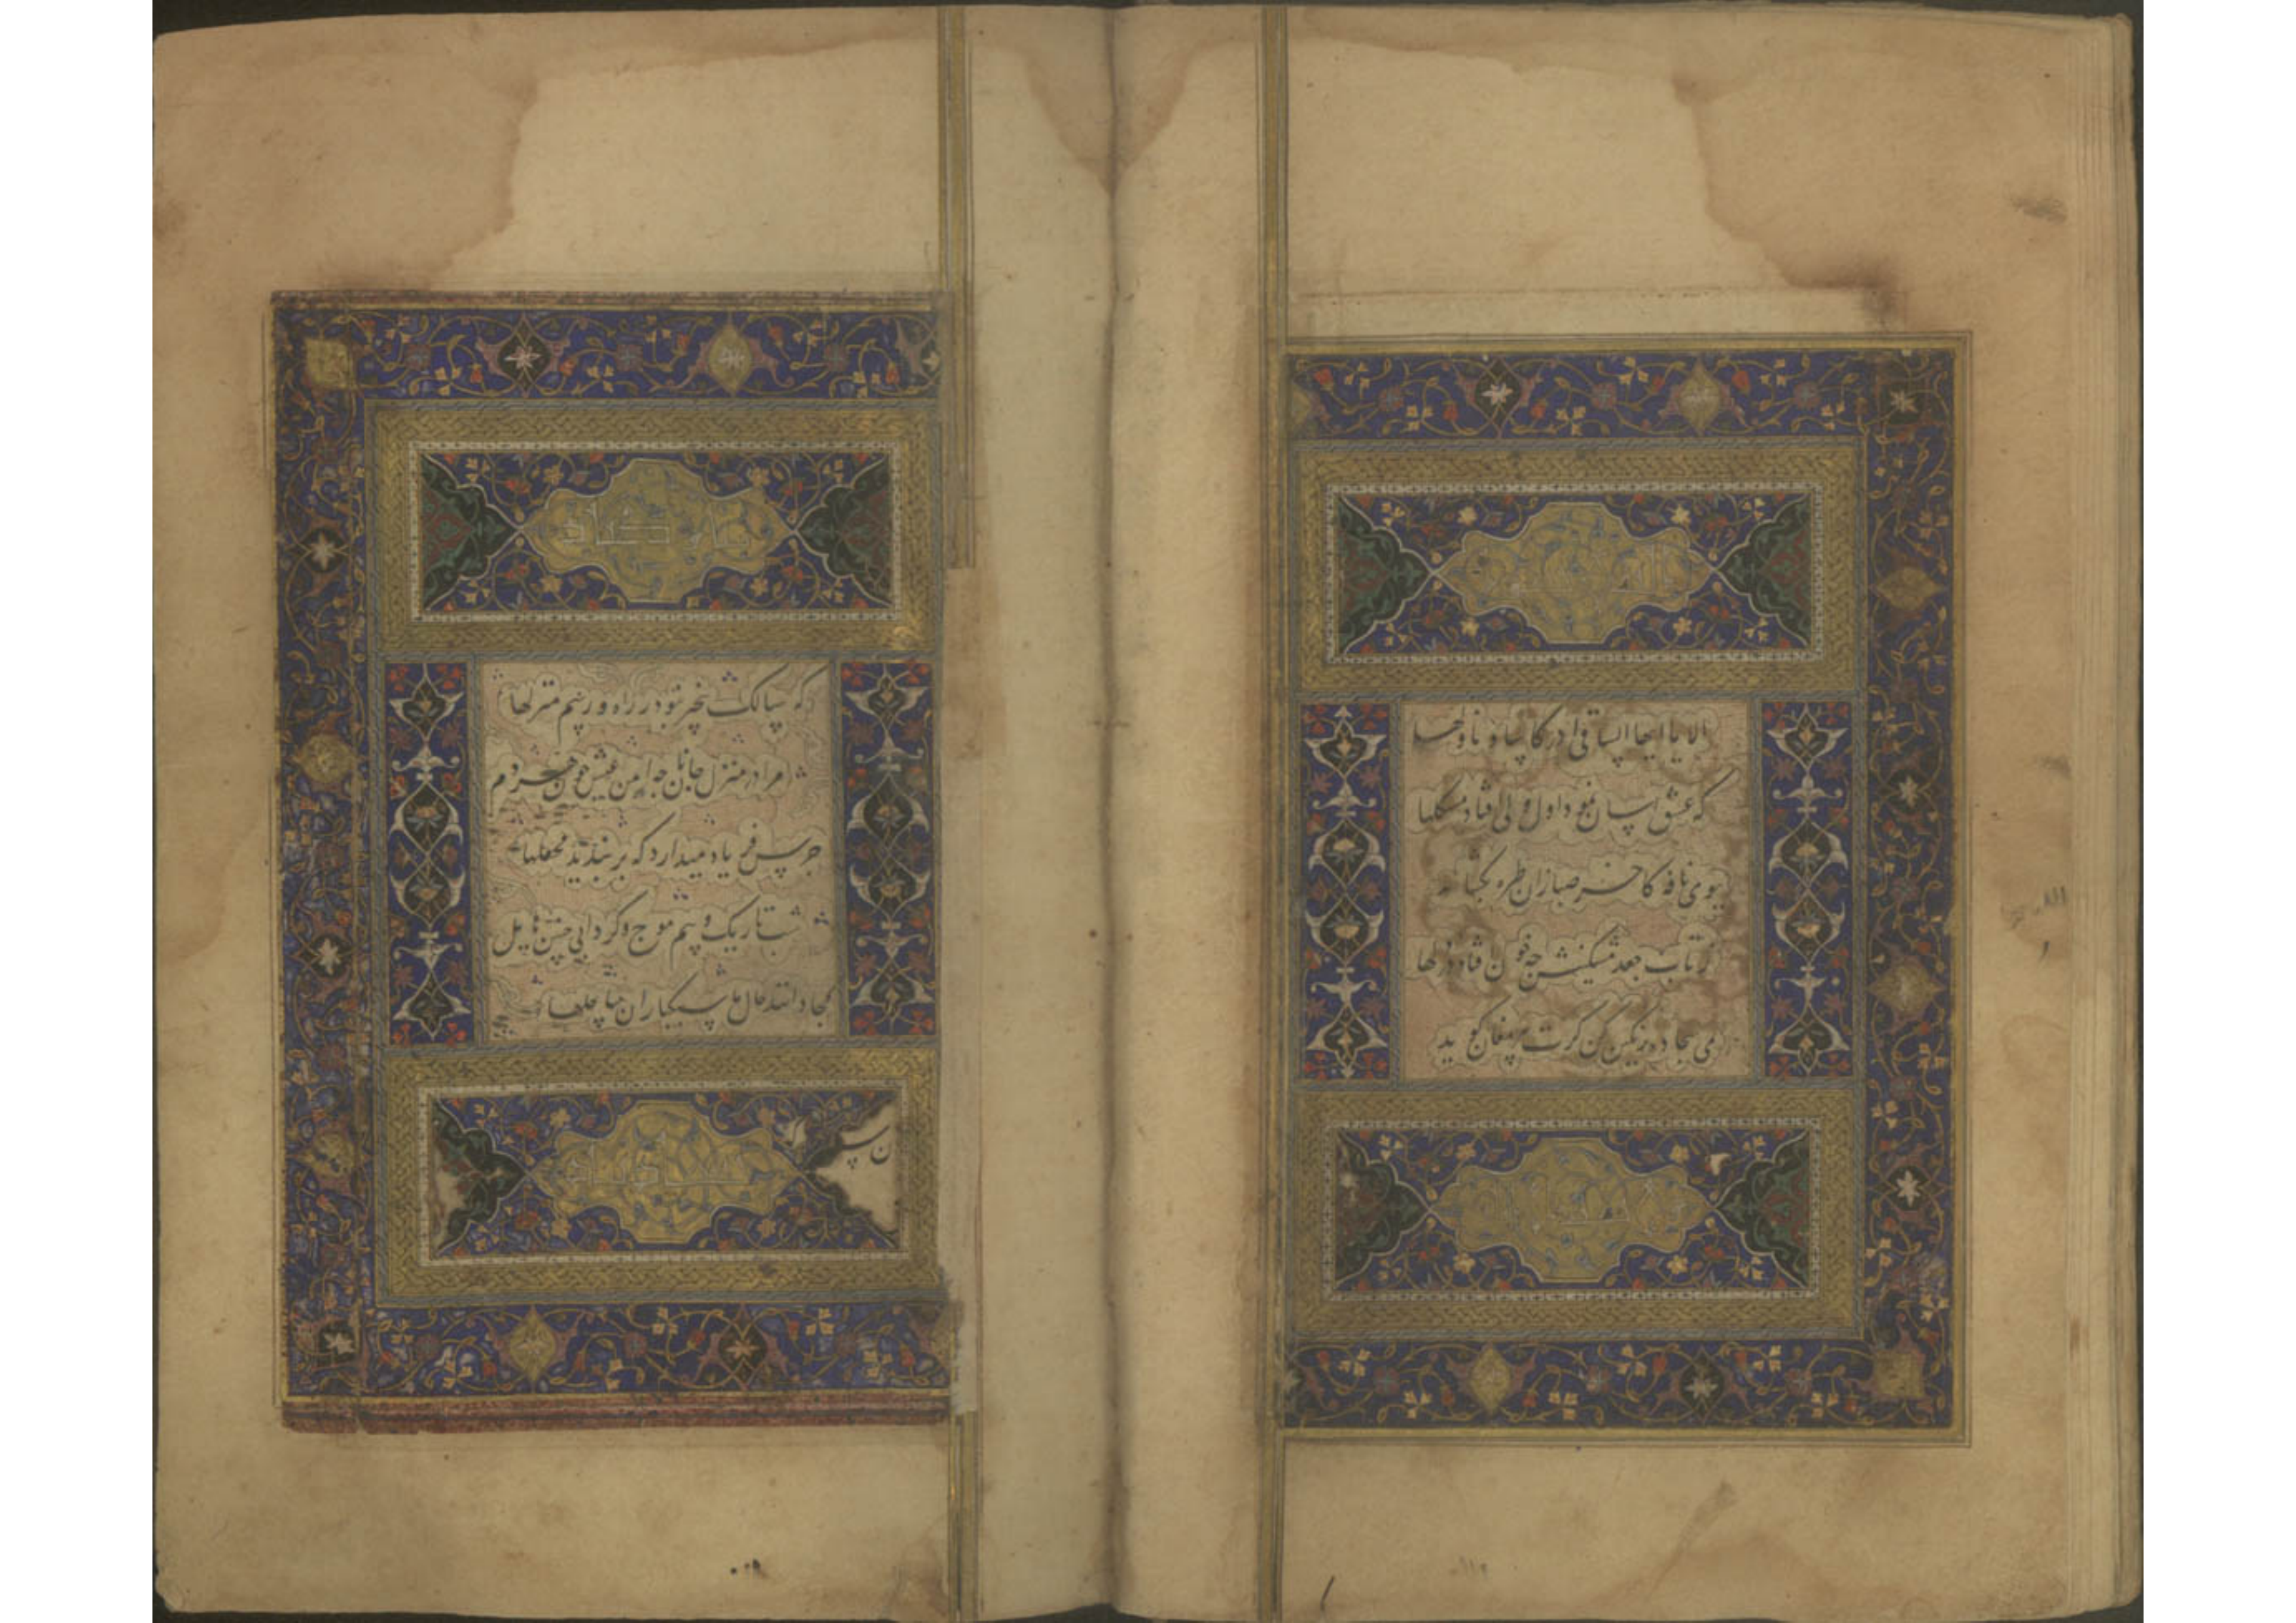 الا یا ایها الساقی ادر کاسا و ناولها
که عشق آسان نمود اول ولی افتاد مشکلها
ببوی نافه کاخر صبا زان طره بگشاید
ز تاب جعد مشکینش چه خون افتاد در دلها
بمی سجاده رنگین کن گرت پیر مغان گوید
که سالک بیخبر نبود ز راه و رسم منزلها
مرا در منزل جانان چه امن عیش چون هر دم
جرس فریاد میدارد که بربندید محملها
شب تاریک و بیم موج و گردابی چنین هایل
کجا دانند حال ما سبکباران ساحلها